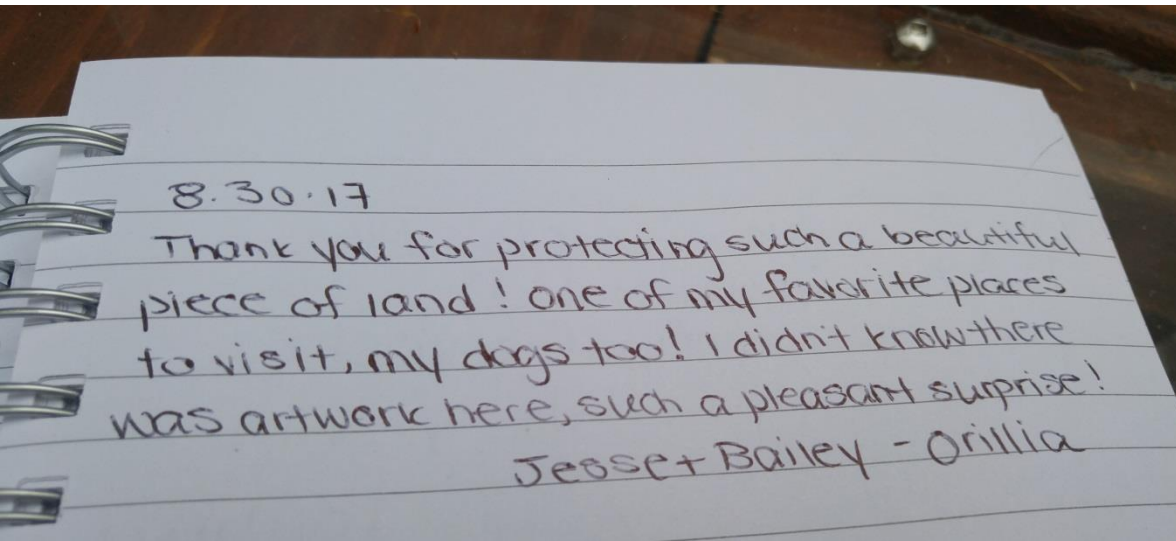 8.30.17
Thank you for protecting such a beautiful
piece of land! One of my favorite places
to visit, my dogs too! I didn't know there
was artwork here, such a pleasant surprise!
Jesse + Bailey - Orillia